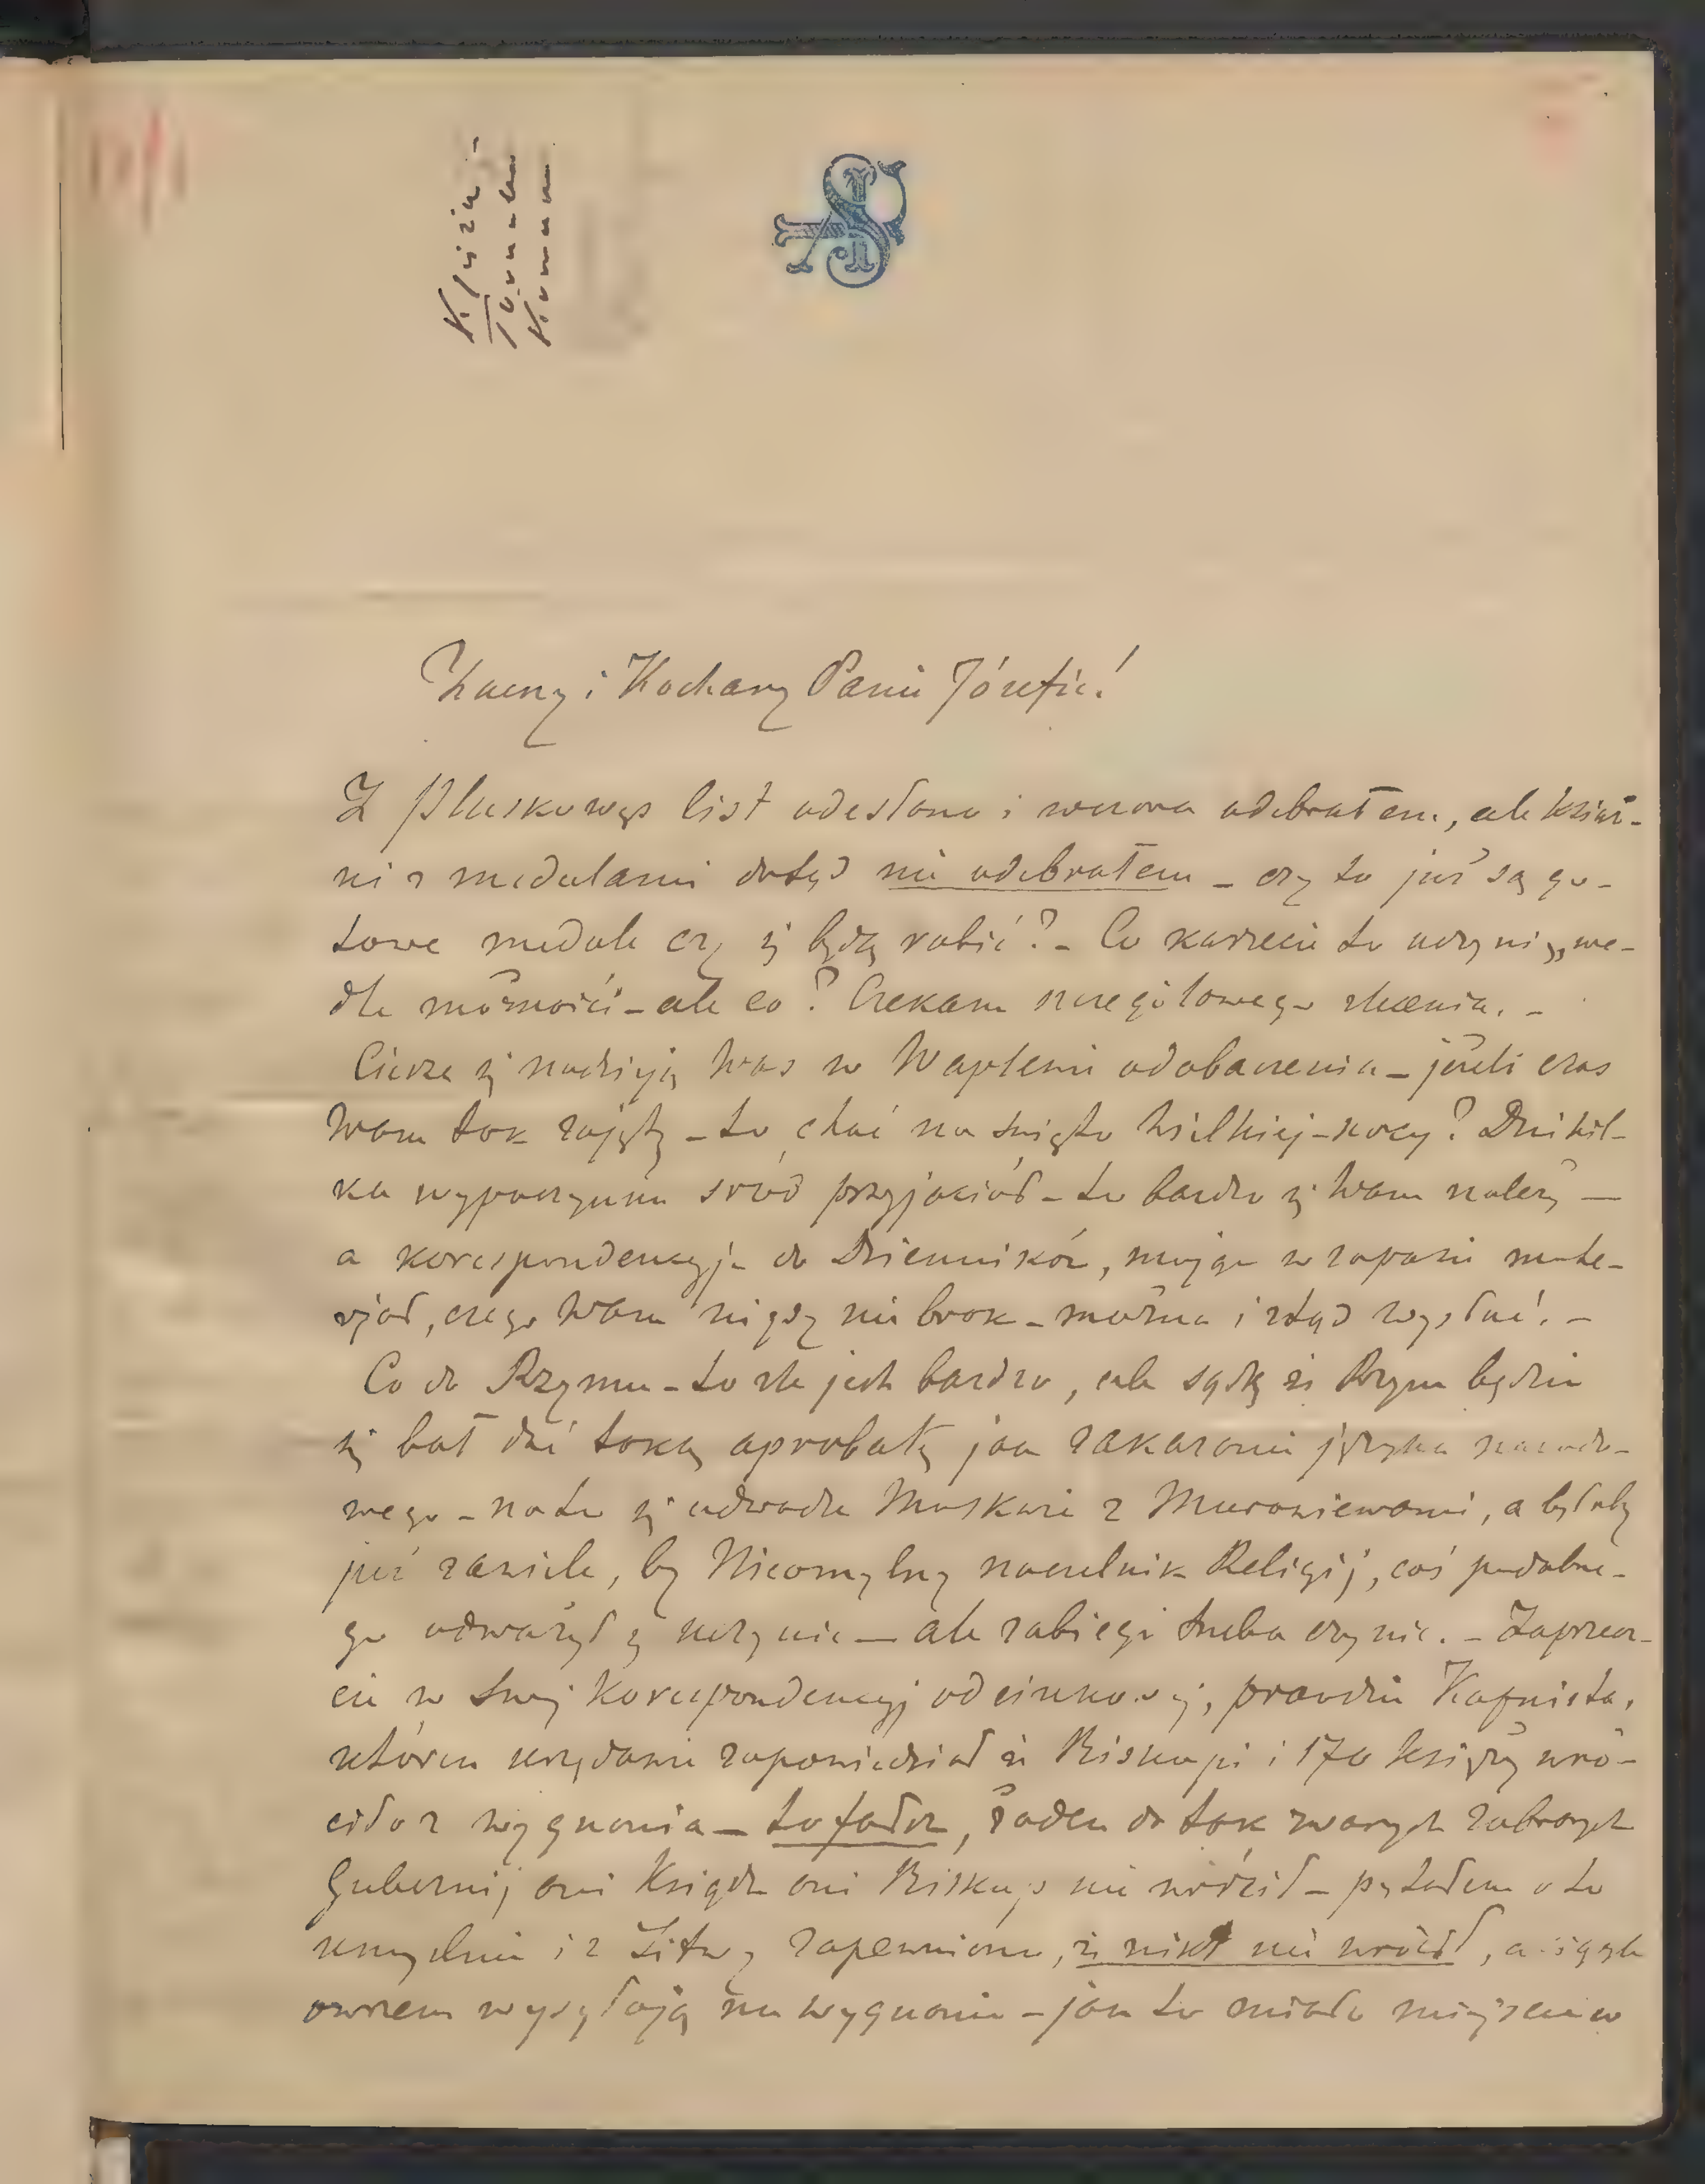 Zacny i Kochany Panie Józefie!
Z Pluskowęs list odesłano i wczora odebrałem, ale
ni z medalami dotąd nie odebrałem – czy to już są go-
towe medale czy się będą robić? – Co każecie to uczynię, we-
dle możności – ale co? Czekam szczegółowego zlecenia. –
Cieszę się nadzieją Was w Waplewie odobaczenia – jeżeli czas
Wam tak zajęty – to choć na święta Wielkiej-nocy? Dni kil-
ka wypoczynku sród przyjaciół – to bardzo się Wam należy –
a korespondencyje do Dzienników, mając w zapasie mate-
rjał, czego Wam nigdy nie brak – można i ztąd wysłać. –
Co do Rzymu – to źle jest bardzo, ale sądzę że Rzym będzie
się bał dać taką aprobatę jak zakazanie języka narodo-
wego – na to się odważa Moskwa z Murawiewami, a byłoby
już zawiele, by Nieomylny naczelnik Religij, coś podobne-
go odważył się uczynić – ale zabiegi trzeba czynić. – Zaprzecz-
cie w swej korespondencyj odcinkowej, prawdzie Kapnista,
który urzędownie zapowiedział że Biskupi i 170 księży wró-
ciło z wygnania – to fałsz, żaden do tak zwanych zabranych
Gubernij ani Ksiądz ani Biskup nie wrócił – pytałem o to
umyślnie i z Litwy zapewniono, że nikt nie wrócił, a
owszem wysyłają na wygnanie – jak to miało miejsce w